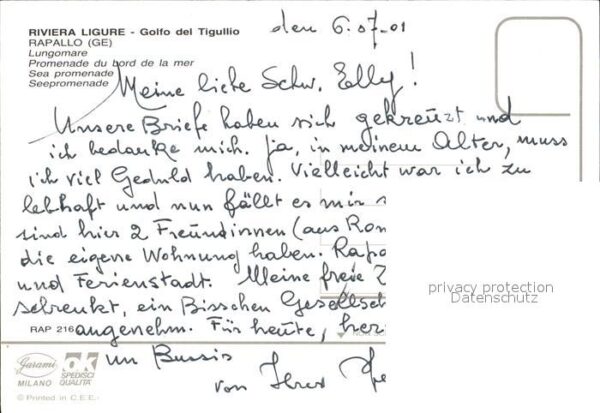 RIVIERA LIGURE - Golfo del Tigullio
RAPALLO (GE)
Lungomare
Promenade du bord de la mer
Sea promenade
Seepromenade
den 6.07.01
Meine liebe Schw. Elly!
Unsere Briefe haben sich gekreuzt und
ich bedanke mich. Ja, in meinem Alter, muss
ich viel Geduld haben. Vielleicht war ich zu
lebhaft und nun fällt es mir
sind hier 2 Freundinnen (aus Rom
die eigene Wohnung haben. Rapa
und Ferienstadt. Meine freie
schrenkt, ein Bisschen Gesellsch
angenehm. Für heute, her
un Bussis
von Ihrer
RAP 216
privacy protection
Datenschutz
Garami
MILANO
ok
SPEDISCI
QUALITA'
© Printed in C.E.E.